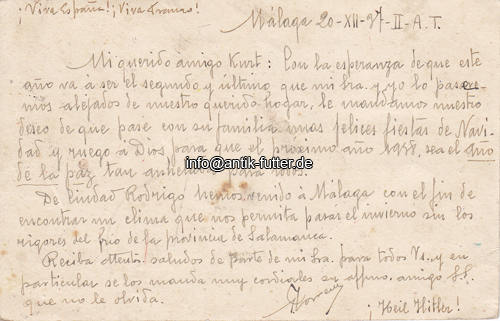 ¡Viva España! ¡Viva Franco!
Málaga 20-XII-37-II-A.T.
Mi querido amigo Kurt: Con la esperanza de que este
año va á ser el segundo y último que mi Sra. y yo lo pasare-
mos alejados de nuestro querido hogar, le mandamos nuestro
deseo de que pase con su familia unas felices fiestas de Navi-
dad y ruego a Dios para que el próximo año 1938, sea el Año
de la paz tan anhelada para todos.
info@antik-futter.de
De Ciudad Rodrigo hemos venido á Málaga con el fin de
encontrar un clima que nos permita pasar el invierno sin los
rigores del frio de la provincia de Salamanca.
Reciba saludos de parte de mi Sra. para todos Vs. y en
particular se los manda muy cordiales su affmo. amigo SS.
que no le olvida.
¡Heil Hitler!